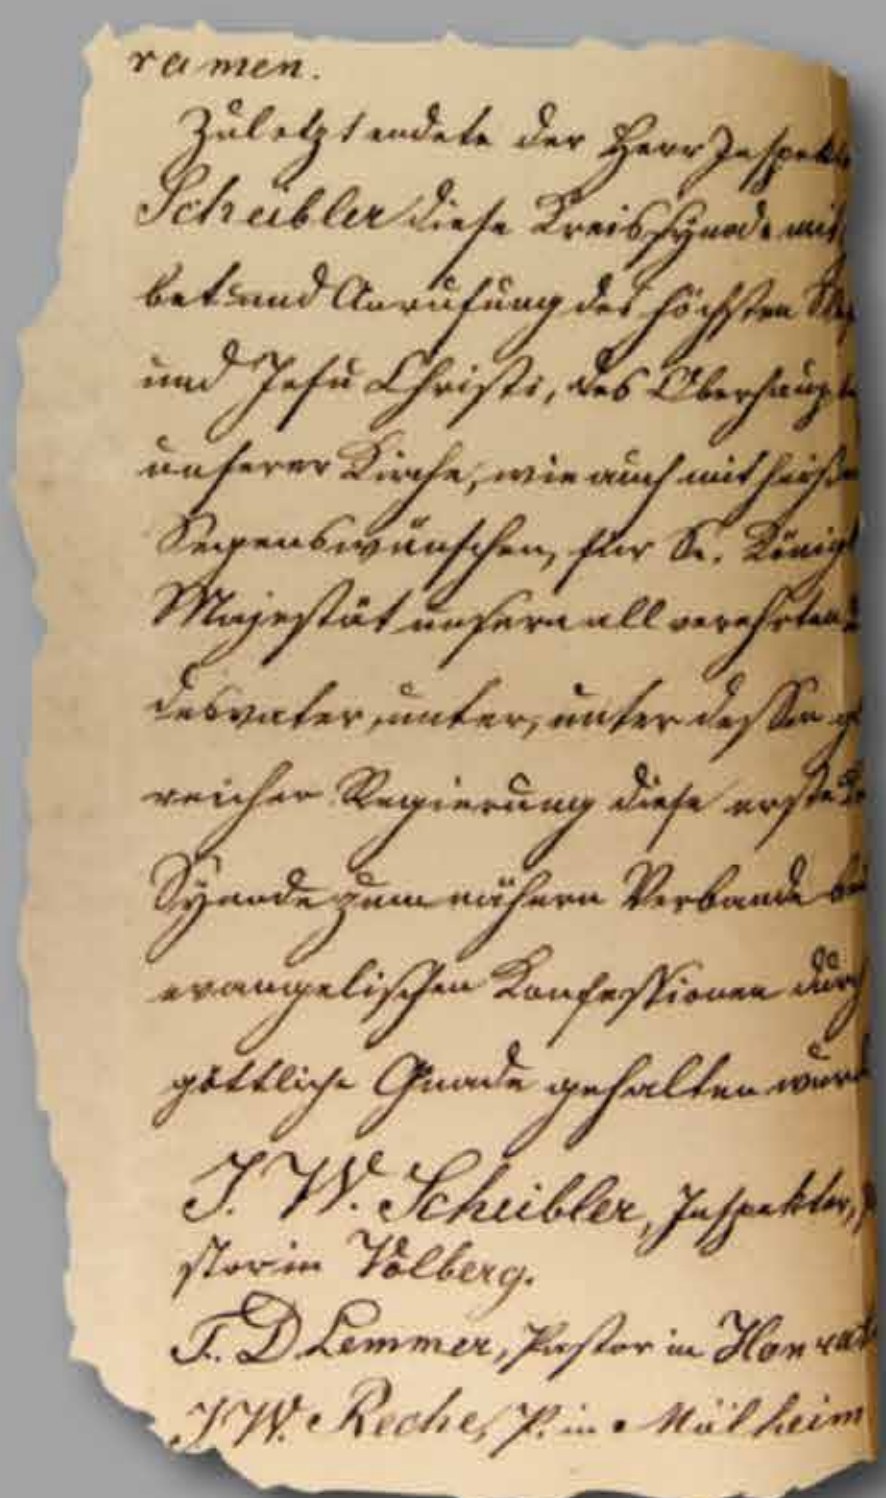 ramen.
Zuletzt endete der Herr Inspekt
Scheibler diese Kreissynode mit
bet und Anrufung des höchsten
und Jesu Christi, des Oberhaupt
unserer Kirche, wie auch mit
Segenswünschen, für Se. Königl
Majestät unsern all verehrten
desvater, unter, unter dessen
reicher Regierung diese erste
Synode zum nähern Verbande
evangelischen Konfessionen durch
göttliche Gnade gehalten wurd
J. W. Scheibler, Inspektor,
stor in Volberg.
F. D Lemmer, Pastor in Honrat
J W. Reche, P. in Mülheim